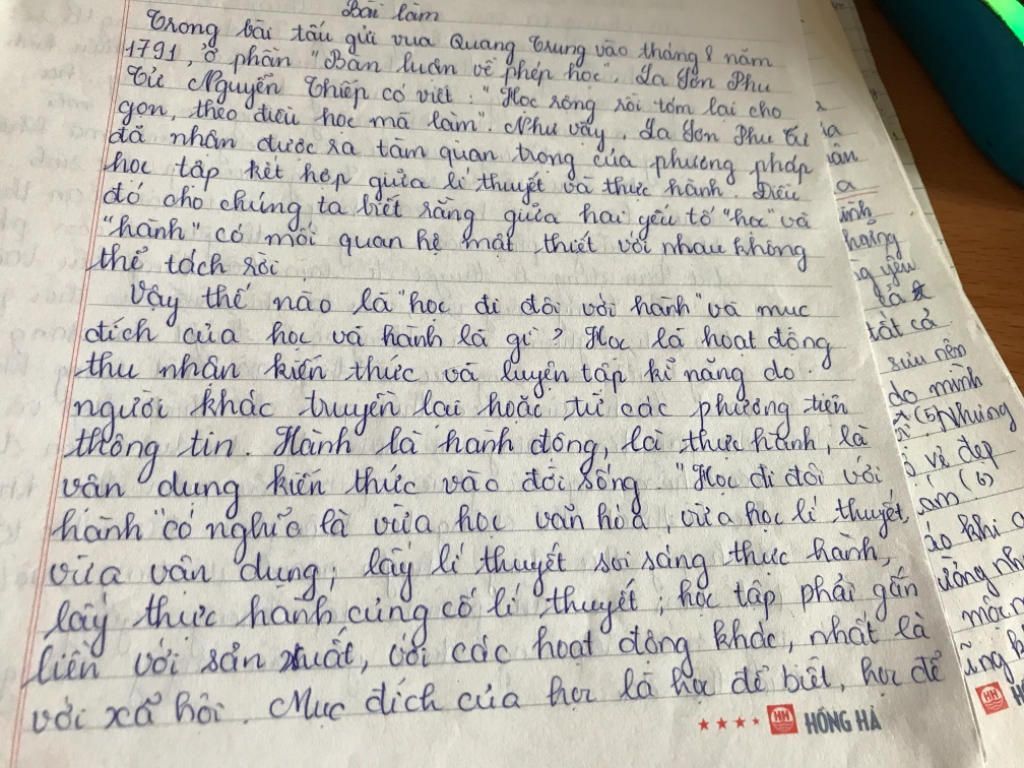 Bài làm
Trong bài tấu gửi vua Quang Trung vào tháng 8 năm
1791, ở phần "Bàn luận về phép học", La Sơn Phu
Tử Nguyễn Thiếp có viết: "Học rộng rồi tóm lại cho
gọn, theo điều học mà làm". Như vậy, La Sơn Phu Tử
đã nhận được ra tầm quan trọng của phương pháp
học tập kết hợp giữa lí thuyết và thực hành. Điều
đó cho chúng ta biết rằng giữa hai yếu tố "học" và
"hành" có mối quan hệ mật thiết với nhau không
thể tách rời
Vậy thế nào là "học đi đôi với hành" và mục
đích của học và hành là gì? Học là hoạt động
thu nhận kiến thức và luyện tập kĩ năng do
người khác truyền lại hoặc từ các phương tiện
thông tin. Hành là hành động, là thực hành, là
vận dụng kiến thức vào đời sống. "Học đi đôi với
hành" có nghĩa là vừa học văn hóa, vừa học lí thuyết,
vừa vận dụng; lấy lí thuyết soi sáng thực hành,
lấy thực hành củng cố lí thuyết; học tập phải gắn
liền với sản xuất, với các hoạt động khác, nhất là
với xã hội. Mục đích của học là học để biết, học để
HỒNG HÀ
tất cả
sưu nên
do mình
(5) Nhưng
vẻ đẹp
(6)
khi